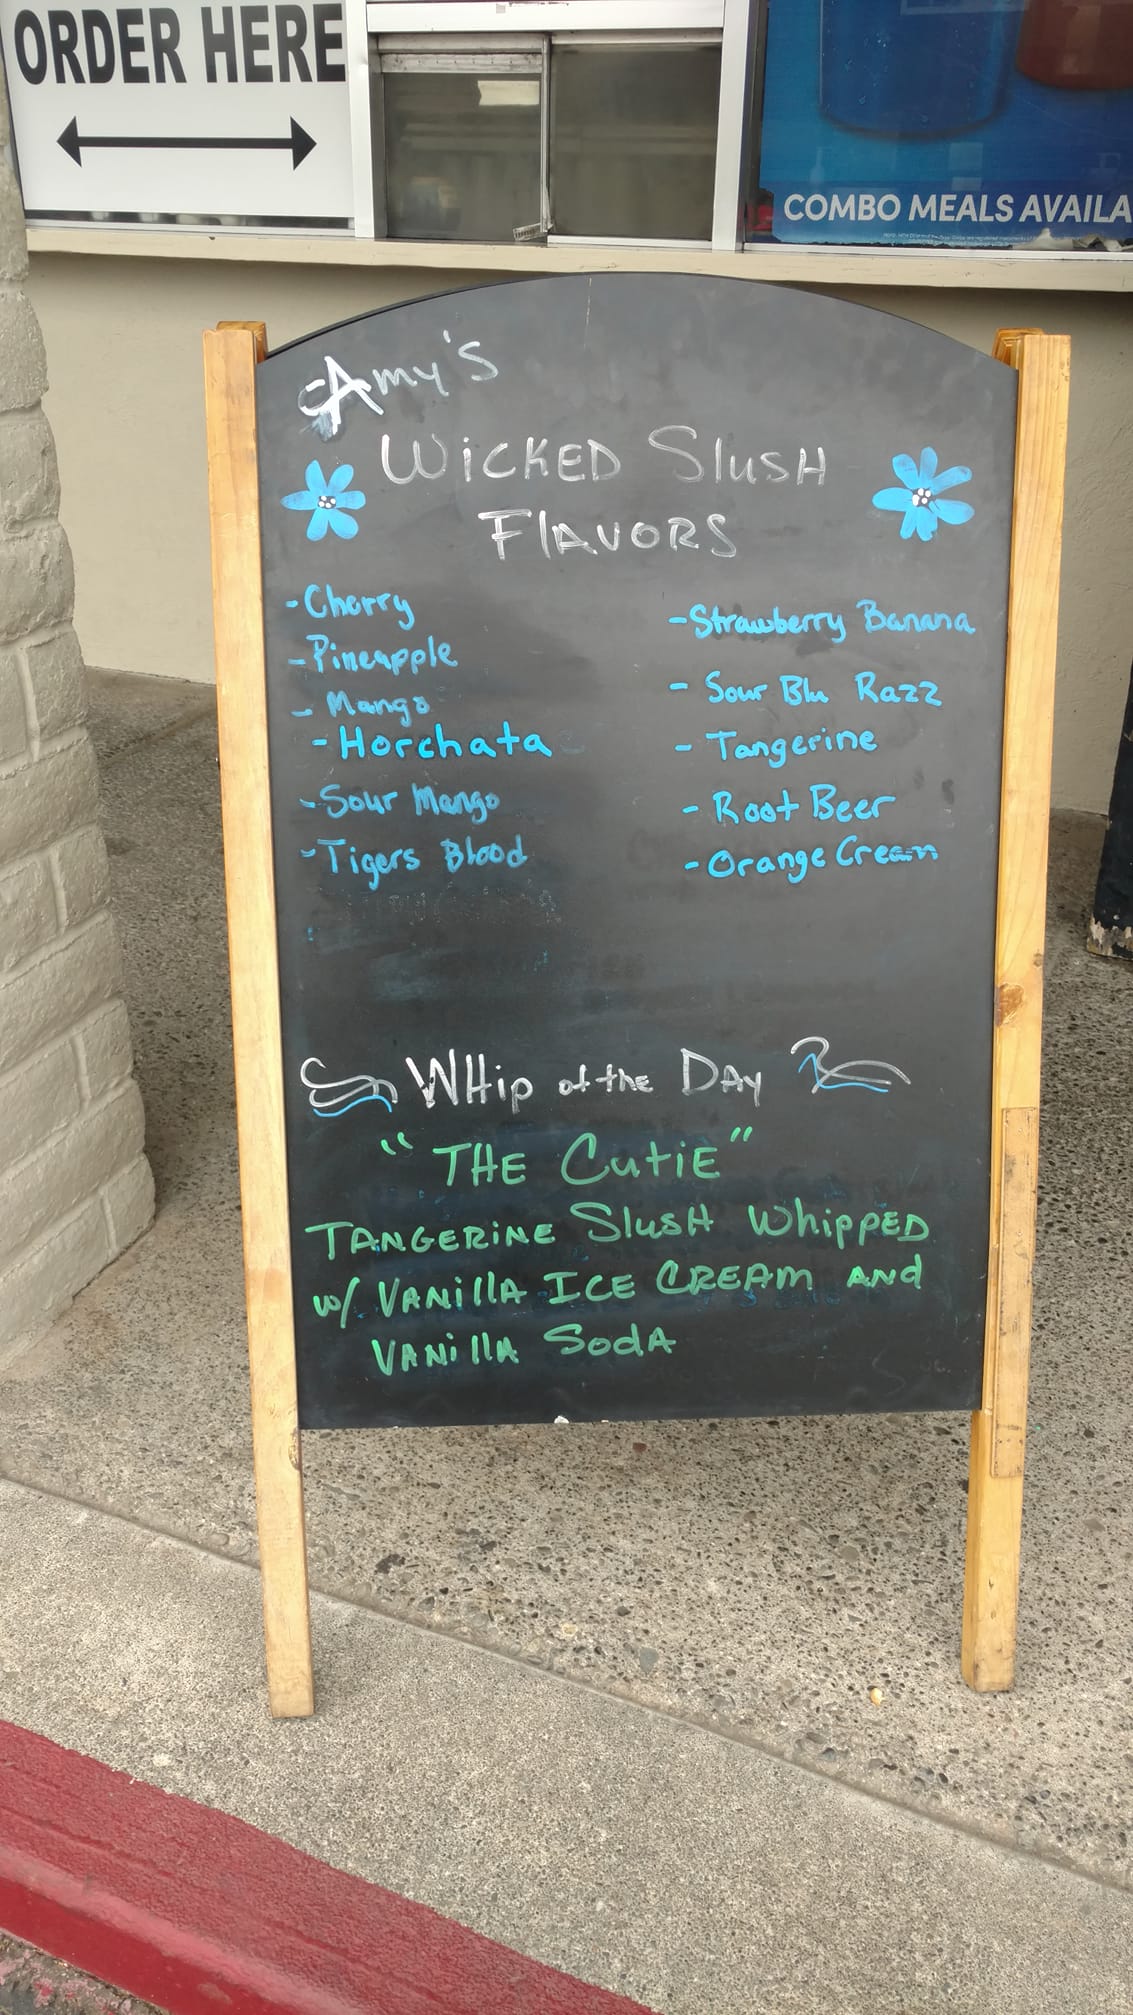 ORDER HERE
COMBO MEALS AVAILA
Amy's
WICKED SlusH
FlAVORS
-Cherry
-Pineapple
- Mango
-Horchata
-Sour Mango
-Tigers Blood
-Strawberry Banana
- Sour Blu Razz
- Tangerine
- Root Beer
- Orange Cream
WHip of the DAy
"THE CutiE"
TANGERINE SlusH WhippED
w/ VANillA ICE CREAM AND
VANillA SodA